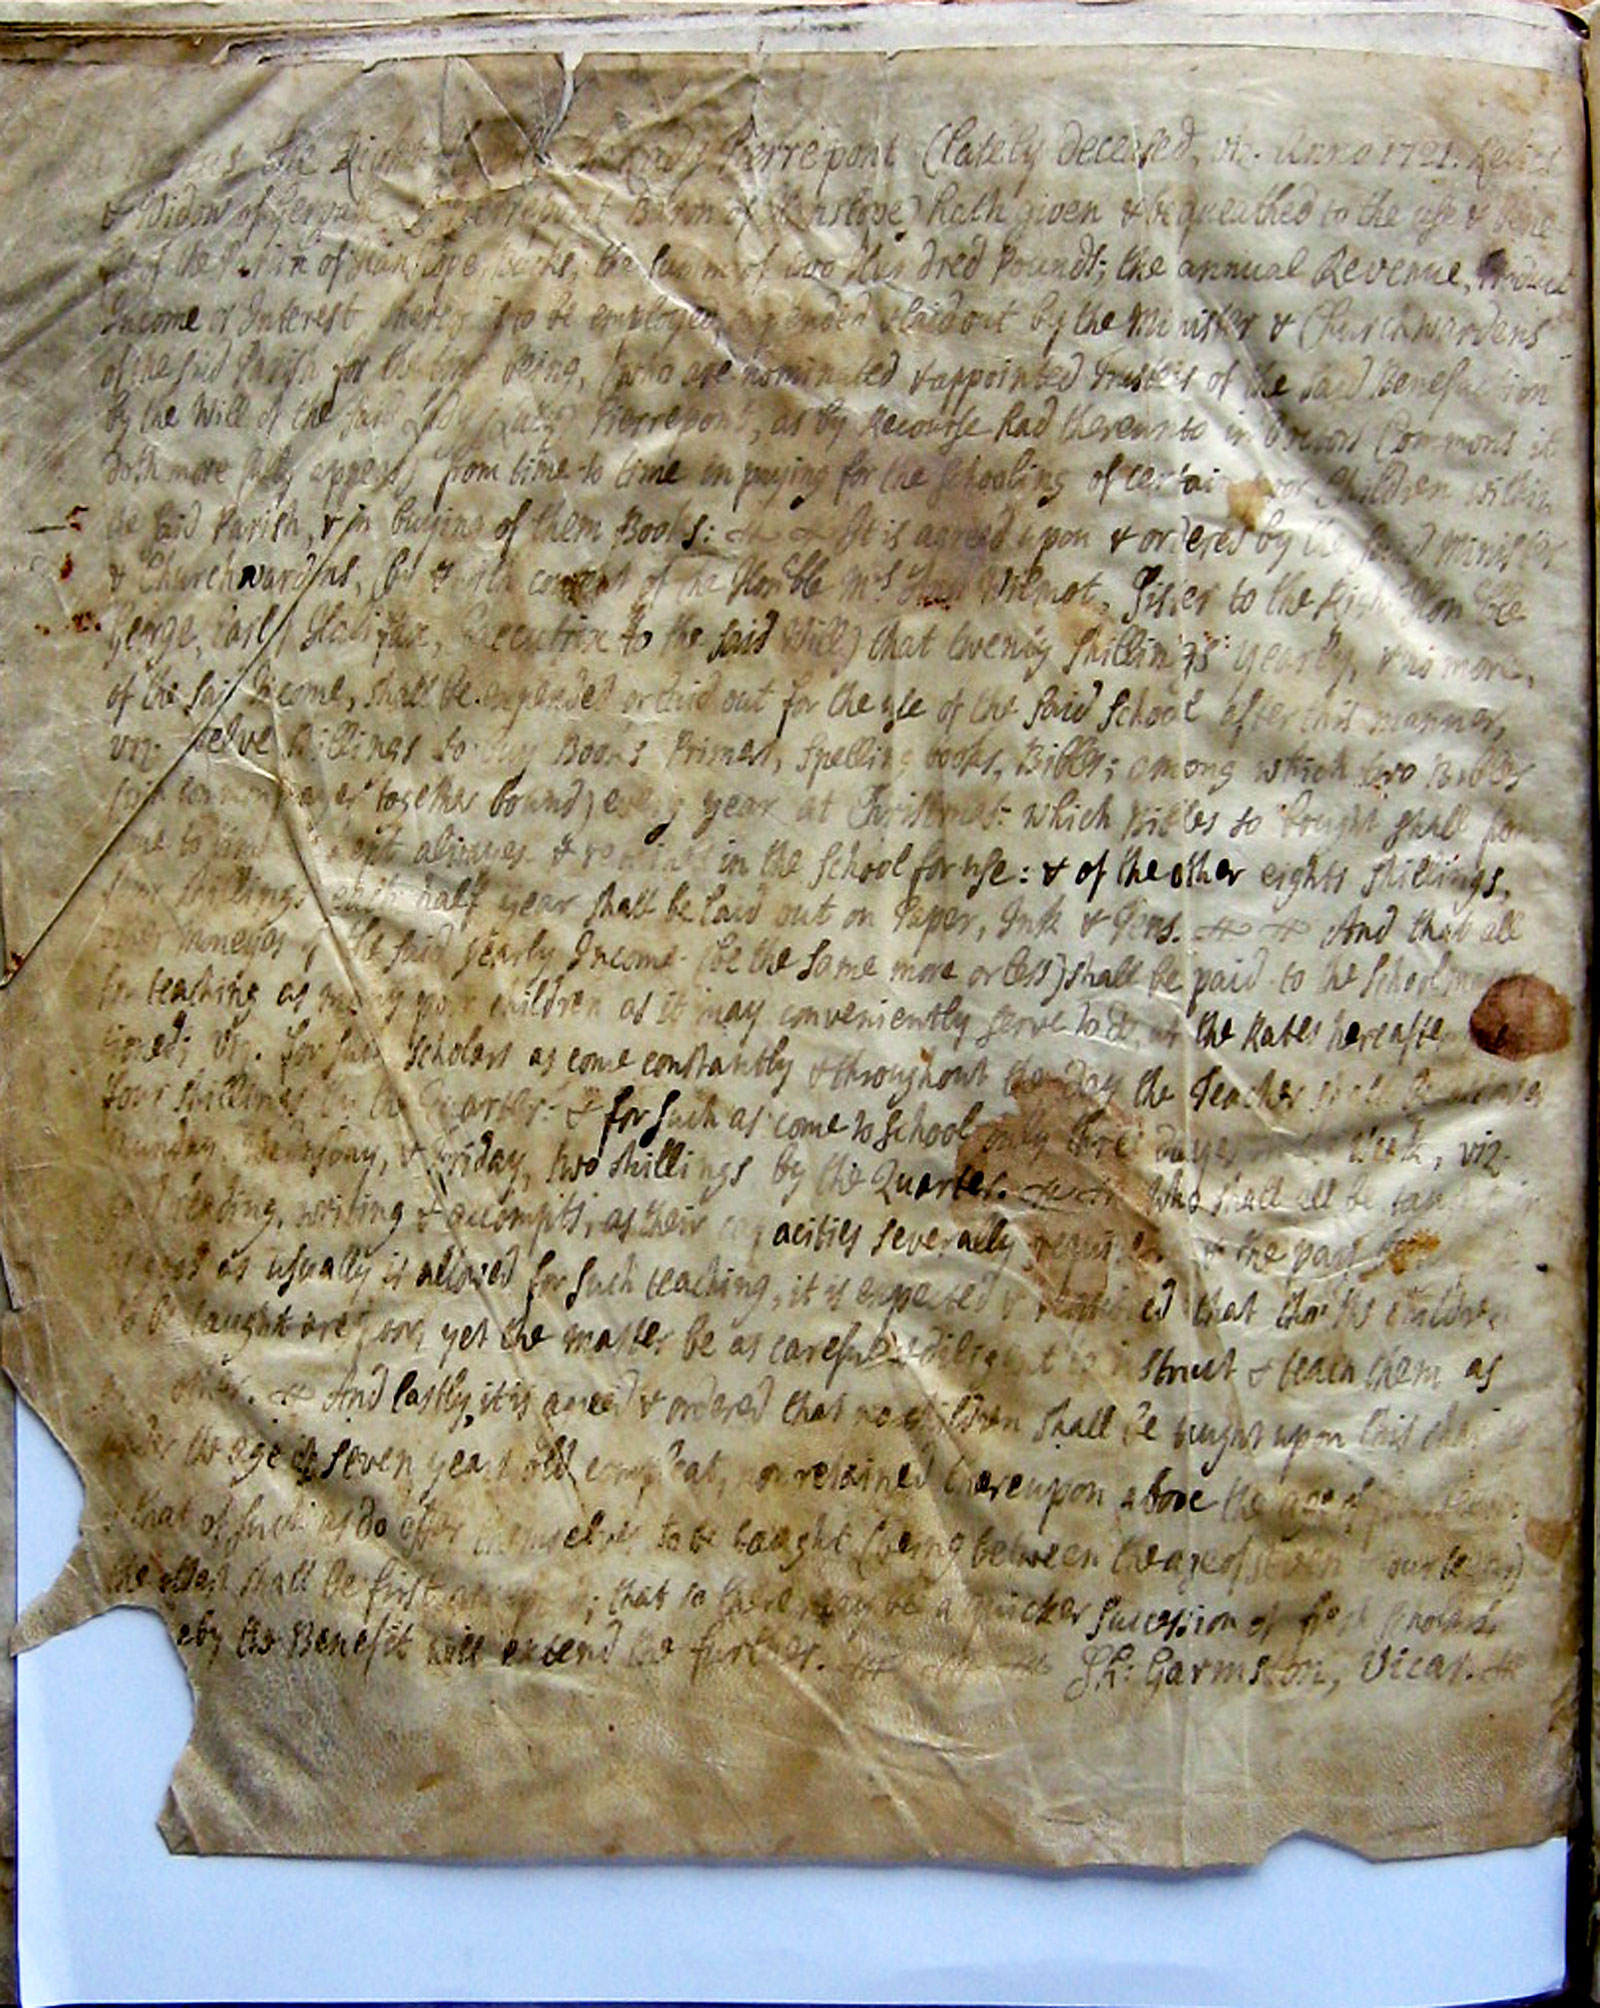 the Right Pierrepont (lately deceased, viz. Anno 1721. Relict
& Widow of Gervase Pierrepont Baron of Hanslope) hath given & bequeathed to the use & bene
fit of the Parish of Hanslope, Bucks, the Summ of two Hundred Pounds; the annual Revenue, Product
Income or Interest thereof to be employed, expended & laid out by the Minister & Churchwardens
of the said Parish for the time being, (who are nominated & appointed Trustees of the said Benefaction
by the Will of the said Lady Lucy Pierrepont, as by Recourse had thereunto in Doctors Commons it
doth more fully appear) from time to time in paying for the Schooling of certain poor Children within
the said Parish, & in buying of them Books: It is agreed upon & ordered by the said Minister
& Churchwardens, (by & with consent of the Honble Mrs Wilmot, Sister to the Right Honble
George, Earl Halifax, Executrix to the said Will) that twenty Shillings yearly, & no more,
of the said Income, shall be expended or laid out for the use of the said School after this manner,
viz. twelve Shillings to buy Books Primers, Spelling books, Bibles; among which two Bibles
(with common prayer together bound) every year at Christmas: which Bibles so bought shall from
time to time kept always & remain in the School for use: & of the other eight shillings,
four shillings each half year shall be laid out on Paper, Ink & Pens. And that all
other moneyes of the said yearly Income (be the same more or less) shall be paid to the Schoolmaster
for teaching as many poor children as it may conveniently serve to do, at the Rates hereafter
tioned; viz. for such Scholars as come constantly & throughout the day the Teacher shall
four shillings by the Quarter: & for such as come to School only three dayes in the Week, viz.
Munday, Wednesday, & Friday, two shillings by the Quarter. Who shall all be taught
reading, writing & accompts, as their capacities severally require. & the pay
as usually is allowed for such teaching, it is expected & required that tho' the children
to be taught are poor, yet the master be as careful & diligent to instruct & teach them as
other. And lastly, it is agreed & ordered that no children shall be taught upon this
under the age of seven years old compleat, nor retained thereupon above the age of fourteen:
that of such as do offer themselves to be taught (being between the age of seven fourteen)
the eldest shall be first; that so there may be a quicker Succession of fresh
the Benefit will extend the further. Jh: Garmston, Vicar.